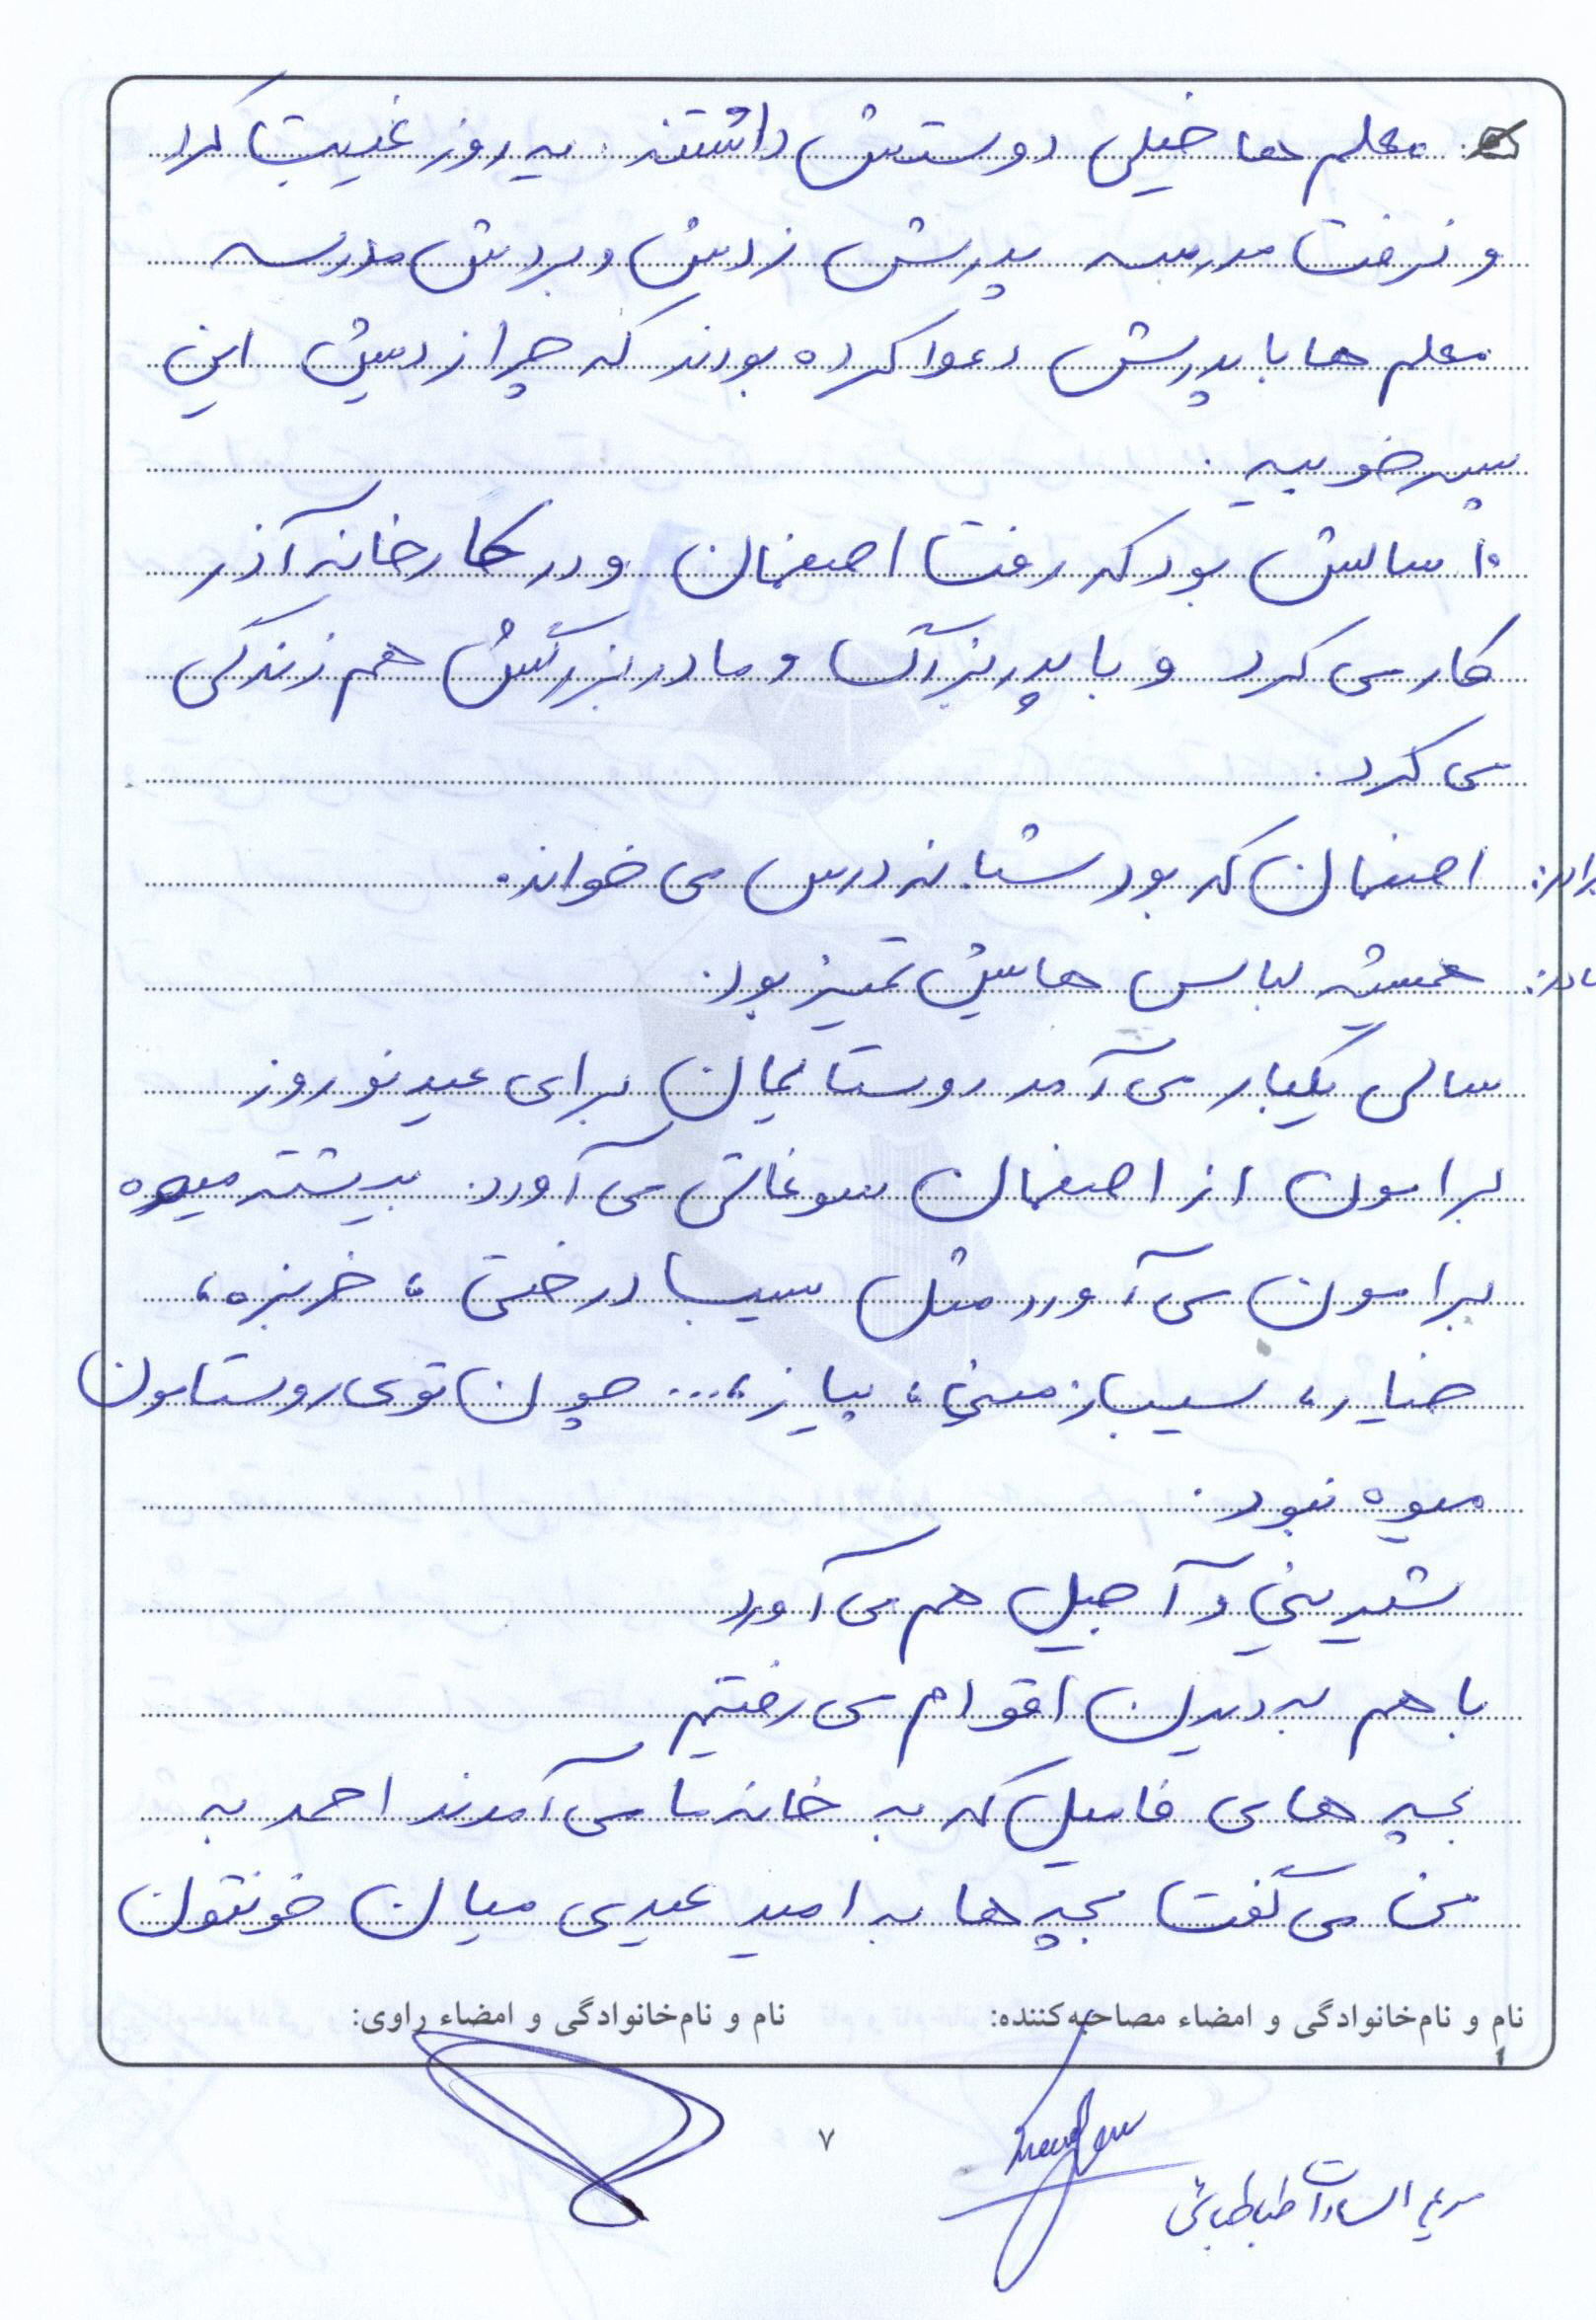 معلم ها خیلی دوستش داشتند. یه روز غیبت کرد
و نرفت مدرسه پدرش زدش و بردش مدرسه
معلم ها با پدرش دعوا کرده بودند که چرا زدیش این
پسر خوبیه.
۱۰ سالش بود که رفت اصفهان و در کارخانه آذر
کار می کرد و با پدربزرگ و مادربزرگش هم زندگی
می کرد.
برادر: اصفهان که بود شبانه درس می خواند.
مادر: همیشه لباس هایش تمیز بود.
سالی یکبار می آمد روستایمان برای عید نوروز
برامون از اصفهان سوغاتی می آورد. بیشتر میوه
برامون می آورد مثل سیب درختی، خربزه،
خیار، سیب زمینی، پیاز،... چون توی روستامون
میوه نبود.
شیرینی و آجیل هم می آورد
با هم به دیدن اقوام می رفتیم
بچه های فامیل که به خانه ما می آمدند احمد به
من می گفت بچه ها به امید عیدی میان خونتون
نام و نام‌خانوادگی و امضاء مصاحبه‌کننده: نام و نام‌خانوادگی و امضاء راوی:
۷
مریم السادات طباطبائی